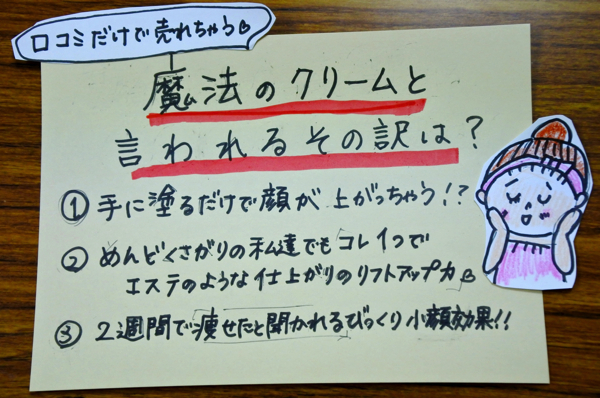 口コミだけで売れちゃう
魔法のクリームと
言われるその訳は?
① 手に塗るだけで顔が上がっちゃう!?
② めんどくさがりの私達でもコレ1つで
エステのような仕上がりのリフトアップ力
③ 2週間で痩せたと聞かれるびっくり小顔効果!!